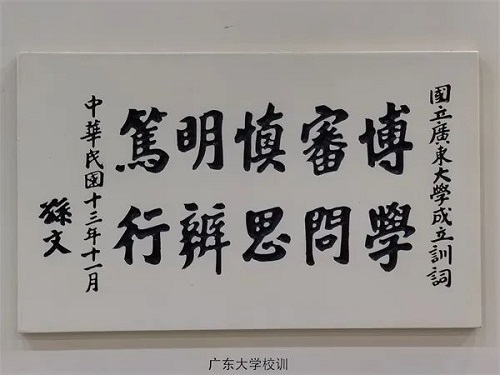 國立廣東大學成立訓詞
博學
審問
慎思
明辨
篤行
中華民國十三年十一月
孫文
广东大学校训